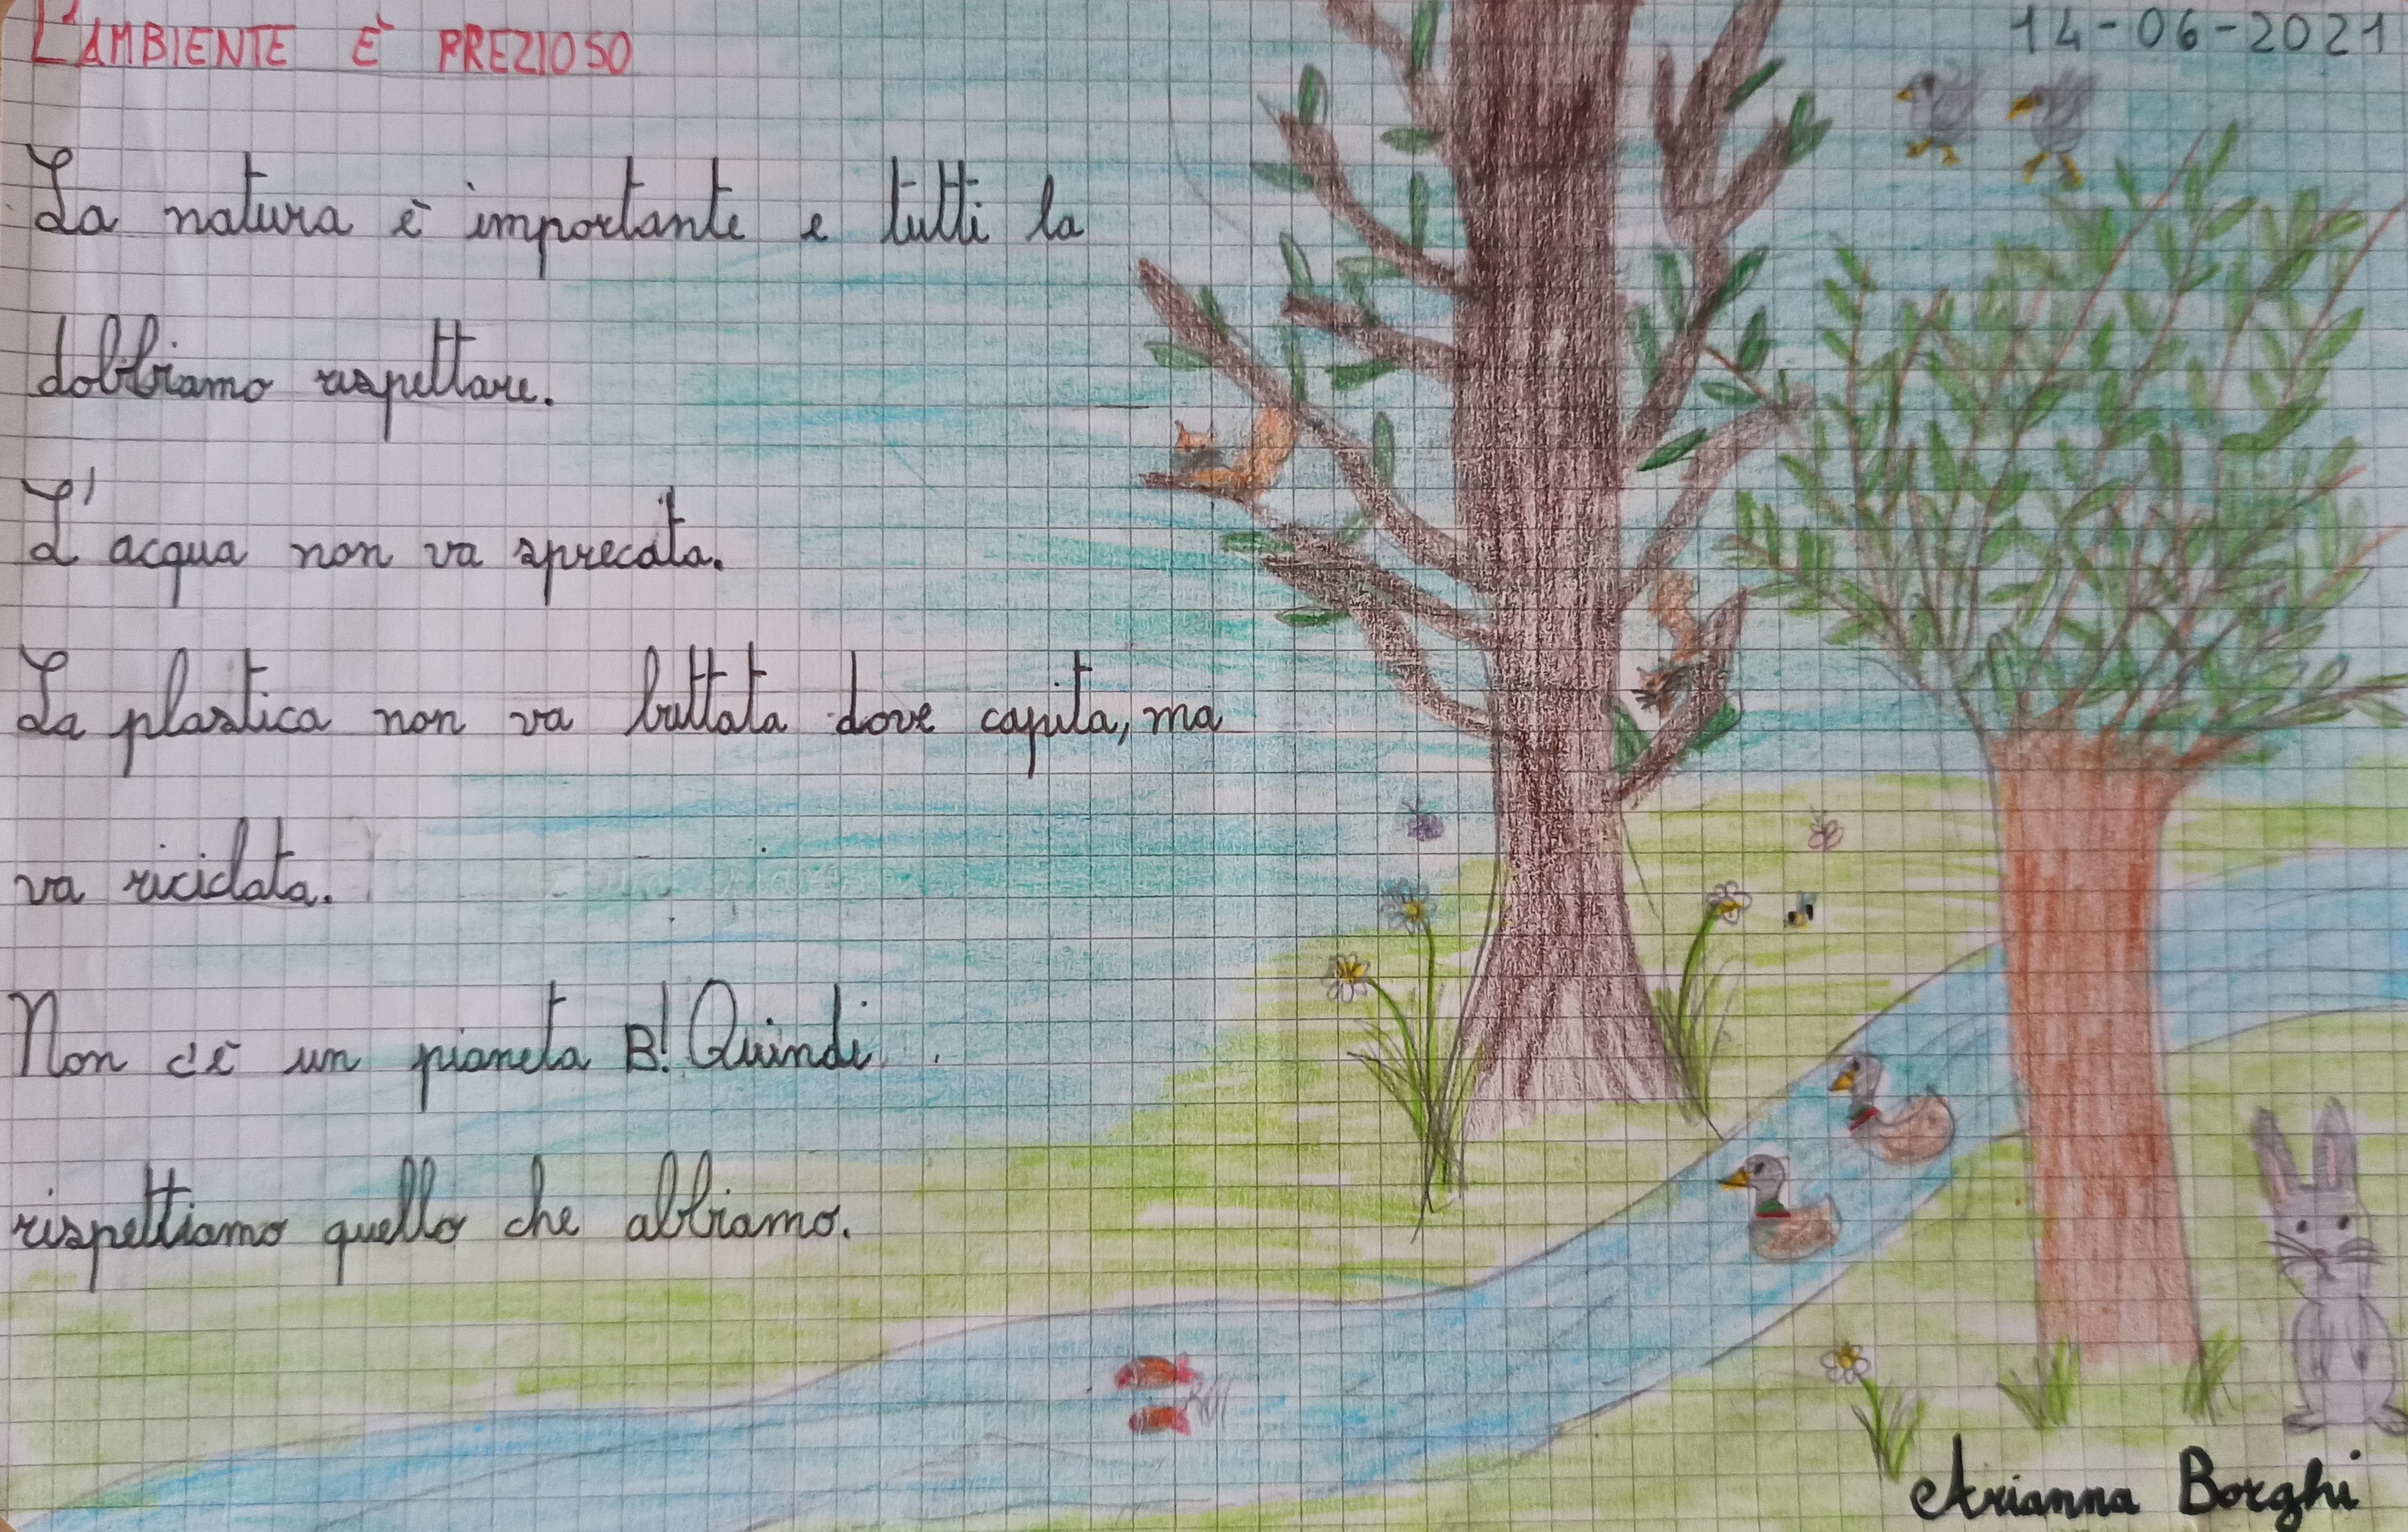 L'AMBIENTE È PREZIOSO
14-06-2021
La natura è importante e tutti la
dobbiamo rispettare.
L'acqua non va sprecata.
La plastica non va buttata dove capita, ma
va riciclata.
Non c'è un pianeta B! Quindi
rispettiamo quello che abbiamo.
Arianna Borghi